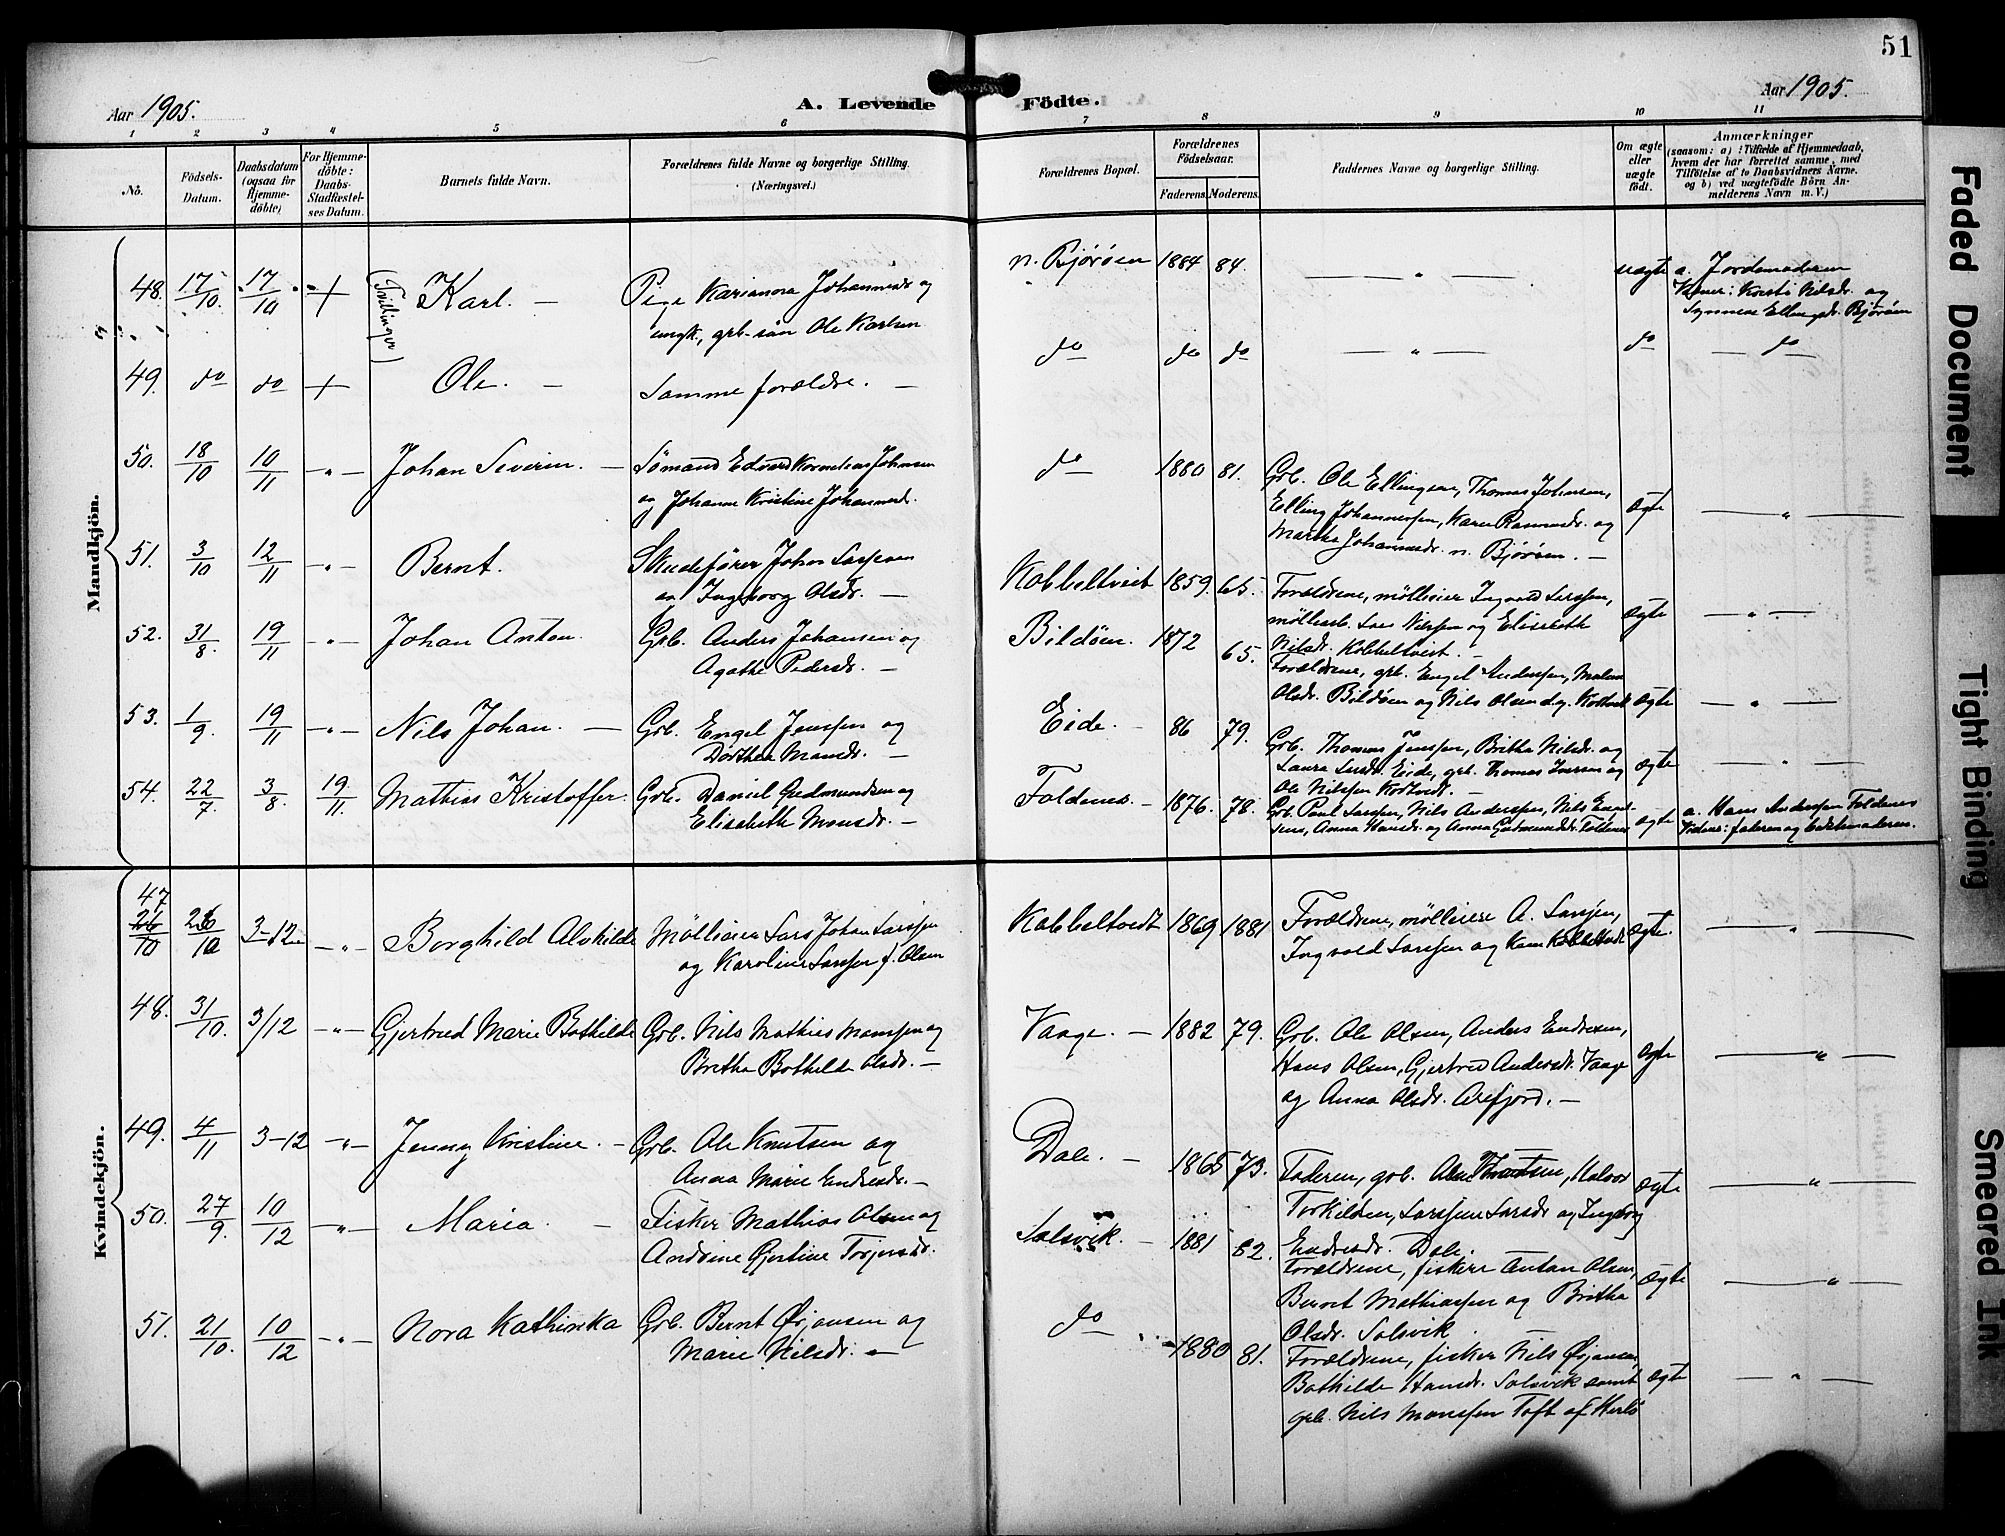 51
Aar 1905.
A. Levende Födte.
Aar 1905.
1 2 3 4 5 6 7 8 9 10 11
No.
Födsels-Datum.
Daabsdatum (ogsaa for Hjemme-döbte)
For Hjemme-döbte: Daabs-Stadfæstel-ses Datum.
Barnets fulde Navn.
Forældrenes fulde Navne og borgerlige Stilling.
(Næringsvei.)
Forældrenes Bopæl.
Forældrenes Födselsaar.
Faderens Moderens
Faddernes Navne og borgerlige Stilling.
Om ægte eller uægte födt.
Anmærkninger
(saasom: a) i Tilfælde af Hjemmedaab,
hvem der har forrettet samme, med
Tilföielse af to Daabsvidners Navne.
og b) ved uægtefödte Börn An-
melderens Navn m. V.)
Mandkjön.
48. 17/10. 17/10 + (Tvillinger) Karl. — Pige Karianna Johannesdr og
ungk., grb.-søn Ole Karlsen
n. Bjørøen 1884 84. — " — uægte a. Jordemoderen
Vidner: Kirsti Nilsdr. og
Synneve Ellingsdr. Bjørøen
49. do do + Ole. — Samme forældre. —
do do do — " — do — do —
50. 18/10 10/11 — " — Johan Severin. — Sømand Edvard Kornelius Johnsen
og Johanne Kristine Johannesdr.
do 1880 81. Grb. Ole Ellingsen, Thomas Johnsen,
Elling Johannessen, Karen Rasmusdr. og
Martha Johannesdr. n. Bjørøen. —
ægte — " —
51. 3/10 12/11 — " — Bernt. Skudefører Johan Larssen
og Ingeborg Olsdr. —
Kobbeltveit 1859. 65. Forældrene, møllerier Ingvald Larssen,
møllerarb. Lars Nilssen og Elisabeth
Nilsdr. Kobbeltveit. —
ægte — " —
52. 31/8. 19/11 — " — Johan Anton. Grb. Anders Johansen og
Agathe Pedersdr. —
Bildøen. 1872 65. Forældrene, grb. Engel Anderssen, Malene
Olsdr. Bildøen og Nils Olsen
ægte — " —
53. 1/9. 19/11 — " — Nils Johan. — Grb. Engel Jenssen og
Dorthea Monsdr. —
Eide. — 86 79. Grb. Thomas Jenssen, Britha Nilsdr. og
Laura Larsdr. Eide, grb. Thomas Iversen og
Ole Nilssen
ægte — " —
54. 22/7 3/8. 19/11. Mathias Kristoffer. Grb. Daniel Gudmundsen og
Elisabeth Monsdr. —
Foldenes. — 1876. 78. Grb. Paul Larssen, Nils Anderssen, Nils Engel-
sens, Anna Hansdr. og Anna Gudmundsdr. Foldenes
ægte a. Hans Anderssen Foldenes
Vidner: faderen og bedstemoderen.
Kvindekjön.
47
26/10 26/10 3-12 — " — Borghild Alvhilde Mølleier Lars Johan Larssen
og Karoline Larssen f. Olsen
Kobbeltvedt 1869 1881 Forældrene, mølleiere A. Larssen,
Ingvald Larssen og Kobbeltvedt
ægte. — " —
48. 31/10. 3/12 — " — Gjertrud Marie Bothilde Grb. Nils Mathias Monssen og
Britha Bothilde Olsdr. —
Vaage. — 1882 79. Grb. Ole Olsen, Anders Endresen,
Hans Olsen, Gjertrud Andersdr. Vaage
og Anna Olsdr. Arefjord. —
ægte — " —
49. 4/11 3-12 — " — Jenny Kristine. — Grb. Ole Knutsen og
Anna Marie Endresdr. —
Dale. — 1865 73. Faderen, grb. Halvor
Torkildsen, Larsdr og Ingeborg
Endresdr. Dale.
ægte — " —
50. 27/9. 10/12 — " — Maria. — Fisker Mathias Olsen og
Andrine Gjertine Torjersdr.
Solsvik. — 1881 82. Forældrene, fiskere Anton Olsen,
Bernt Mathiassen og Britha
Olsdr. Solsvik.
ægte — " —
51. 21/10. 10/12 — " — Nora Kathinka Grb. Bernt Ørjansen og
Marie Nilsdr. —
do 1880 81. Forældrene, fisker Nils Ørjansen,
Bothilde Hansdr. Solsvik samt
grb. Nils Monssen Toft af Herlø
ægte — " —
Faded Document
Tight Binding
Smeared Ink